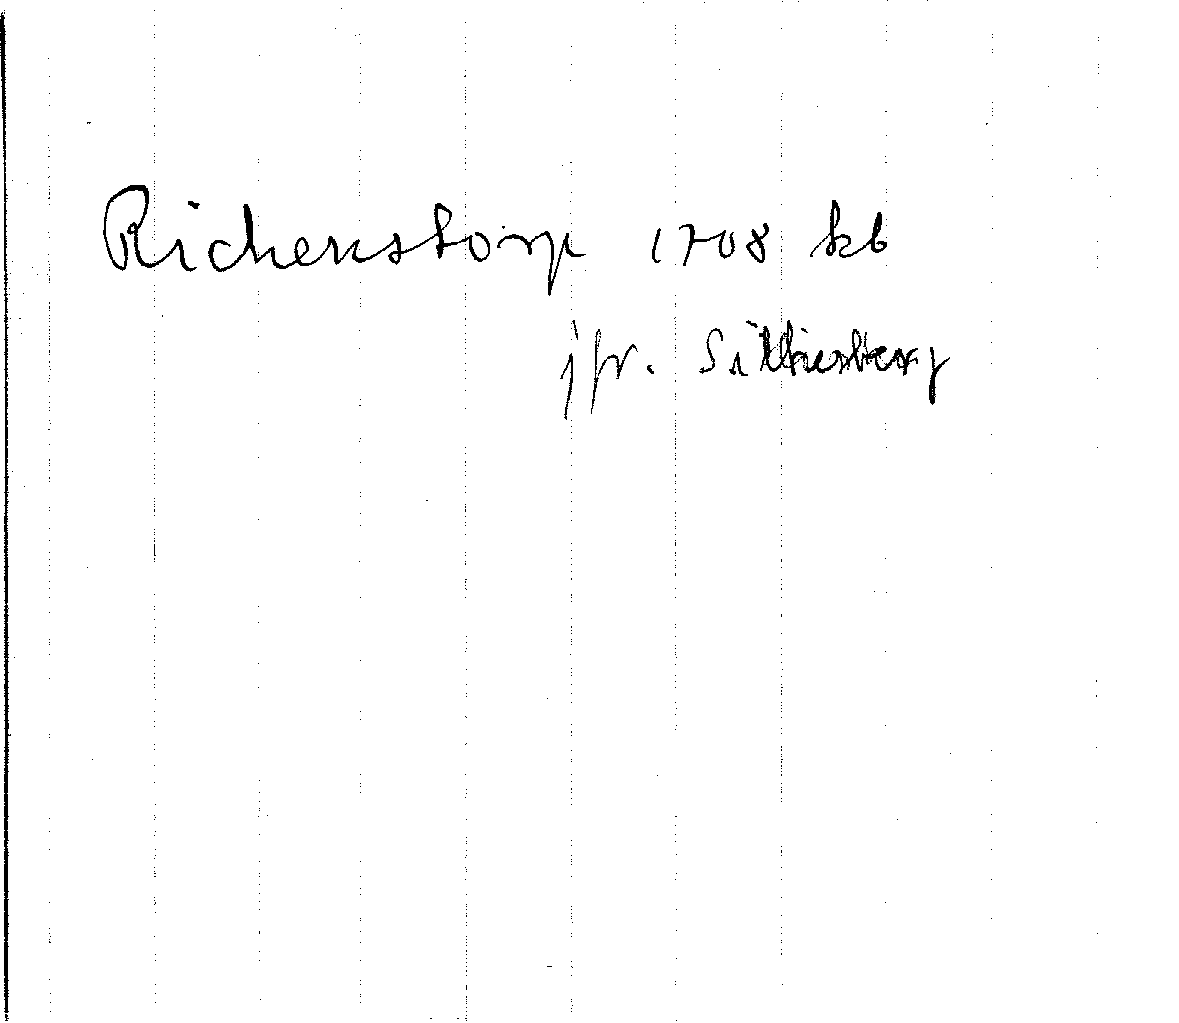 Richenstorp 1708 kb
jfr.